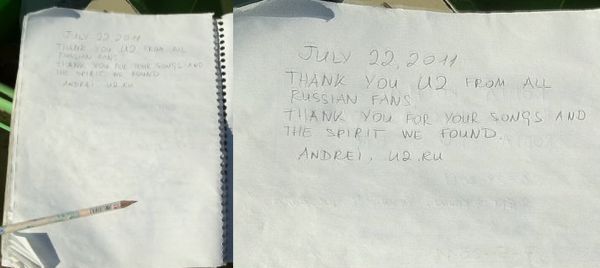 JULY 22, 2011
THANK YOU U2 FROM ALL
RUSSIAN FANS
THANK YOU FOR YOUR SONGS AND
THE SPIRIT WE FOUND
ANDREI U2.RU
JULY 22, 2011
THANK YOU U2 FROM ALL
RUSSIAN FANS
THANK YOU FOR YOUR SONGS AND
THE SPIRIT WE FOUND.
ANDREI, U2.RU